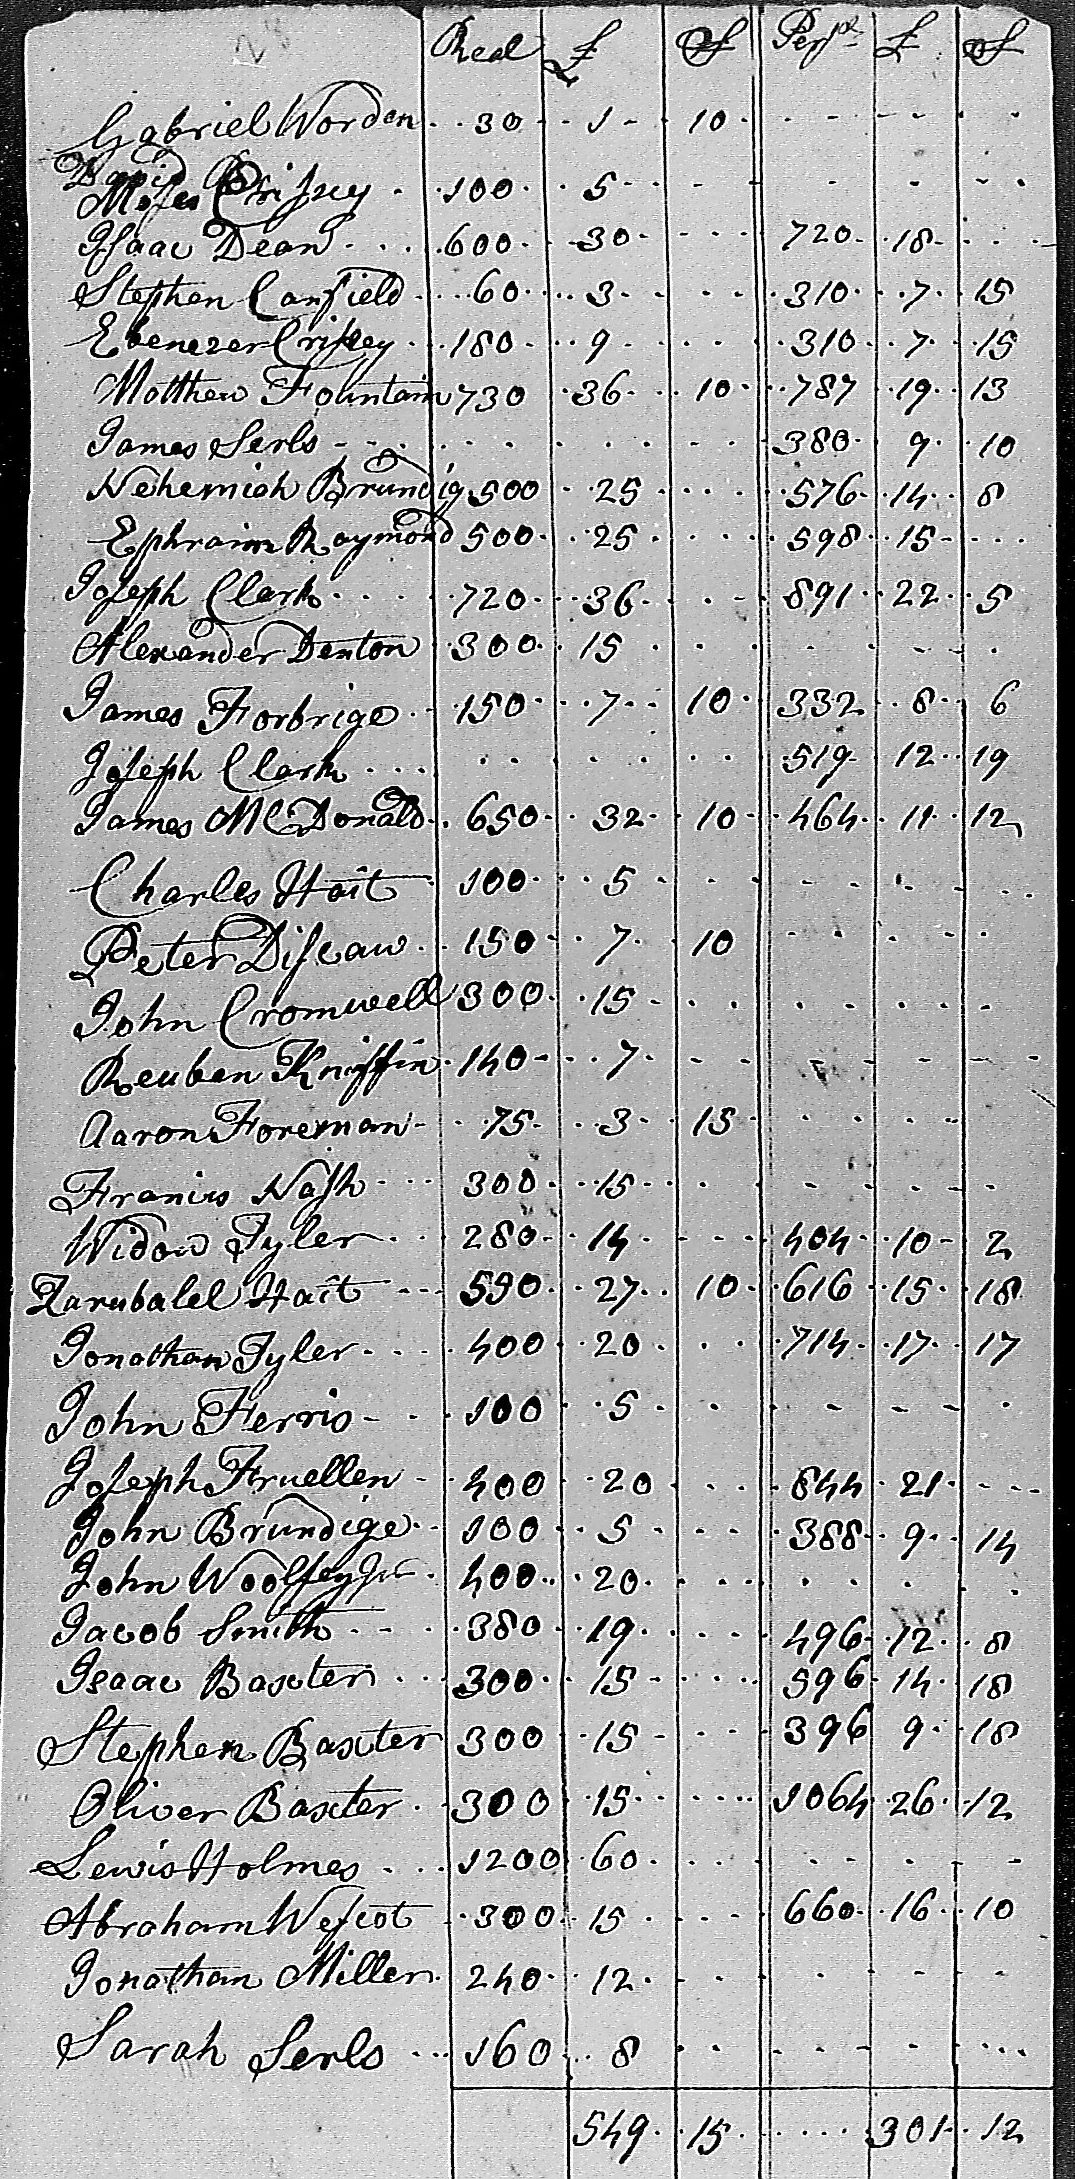 28
Real £ S Persl £ S
Gabriel Worden 30 1 10
David
Moses Crissey 100 5
Isaac Dean 600 30 720 18
Stephen Canfield 60 3 310 7 15
Ebenezer Crissey 180 9 310 7 15
Matthew Fountain 730 36 10 787 19 13
James Serls 380 9 10
Nehemiah Brundig 500 25 576 14 8
Ephraim Raymond 500 25 598 15
Joseph Clark 720 36 891 22 5
Alexander Denton 300 15
James Forbrige 150 7 10 332 8 6
Joseph Clark 519 12 19
James McDonald 650 32 10 464 11 12
Charles Hait 100 5
Peter Discaw 150 7 10
John Cromwell 300 15
Reuben Kniffin 140 7
Aaron Foreman 75 3 15
Francis Nash 300 15
Widow Tyler 280 14 404 10 2
Zarubalel Hait 550 27 10 616 15 18
Jonathan Tyler 400 20 714 17 17
John Ferris 100 5
Joseph Fruellen 400 20 844 21
John Brundige 100 5 388 9 14
John Woolsey Jur 400 20
Jacob Smith 380 19 496 12 8
Isaac Baxter 300 15 596 14 18
Stephen Baxter 300 15 396 9 18
Oliver Baxter 300 15 1064 26 12
Lewis Holmes 1200 60
Abraham Wescot 300 15 660 16 10
Jonathan Miller 240 12
Sarah Serls 160 8
549 15 301 12